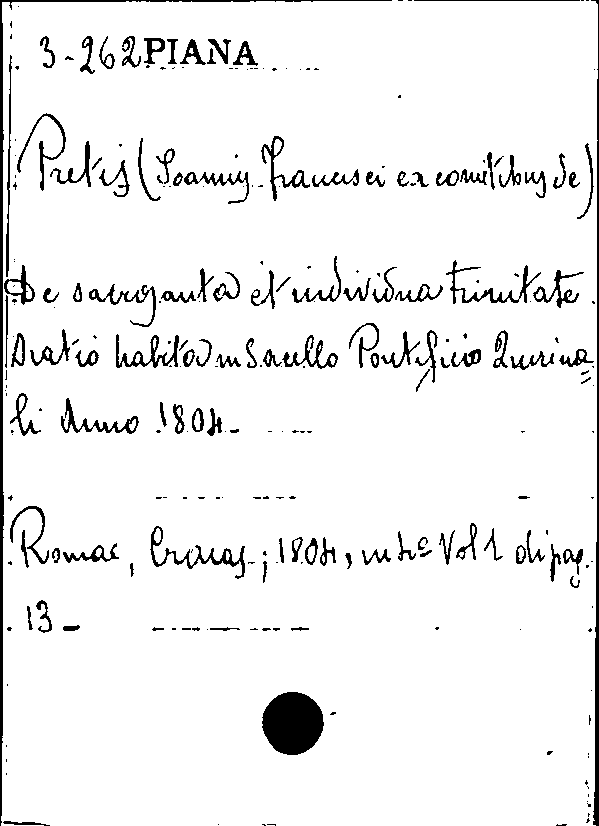 3-262 PIANA
Pretis (Joannis Francisci ex comitibus de)
De sacrosanta et individua trinitate.
Oratio habita in Sacello Pontificio Quirina=
li Anno 1804-
Romae, Cracas; 1804, in 4º Vol 1 di pag.
13-